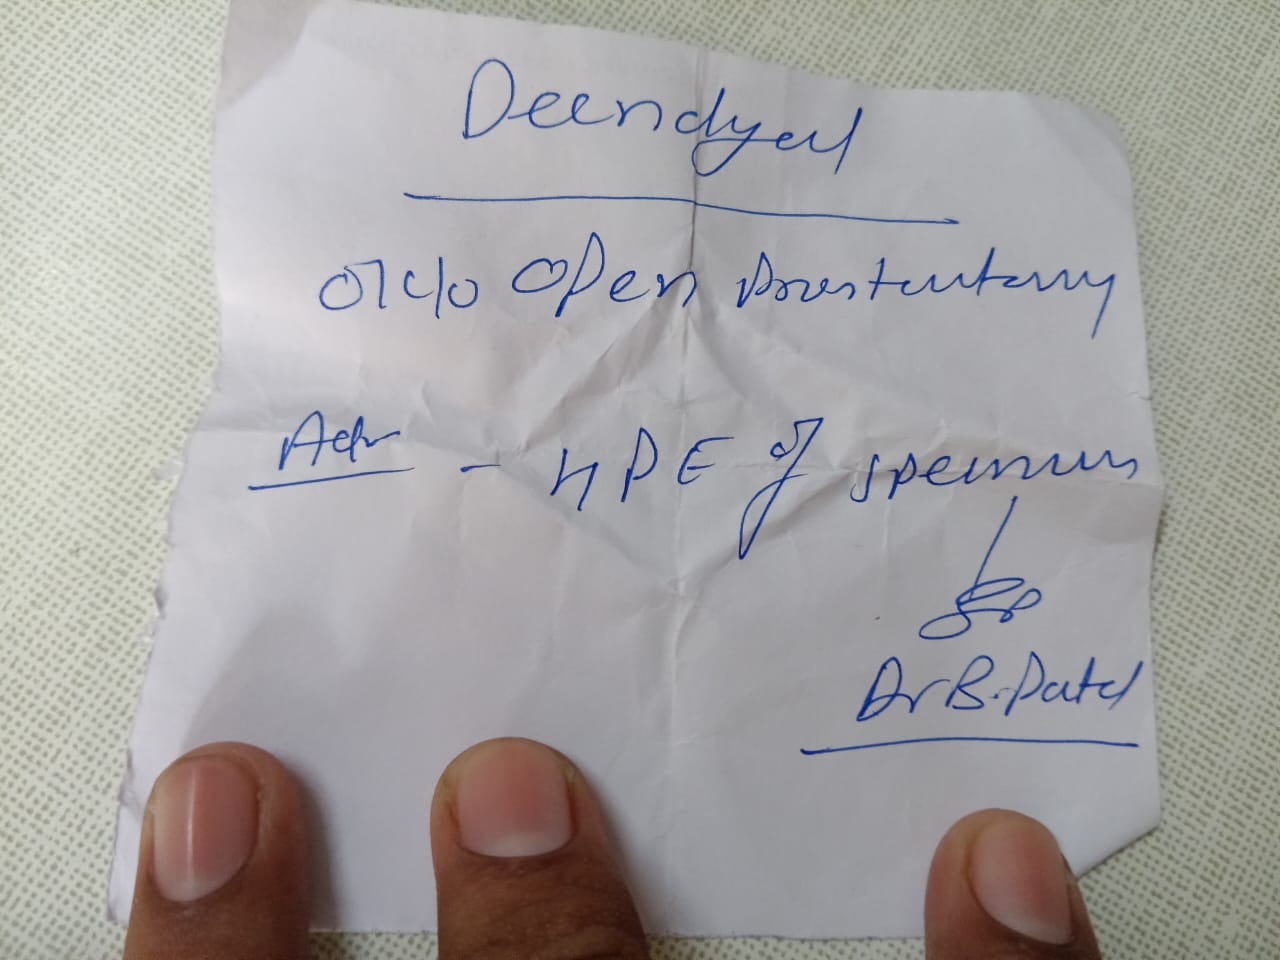 Deendyal
O/c/o Open Prostectomy
Adv - HPE of specimen
Dr B. Patel